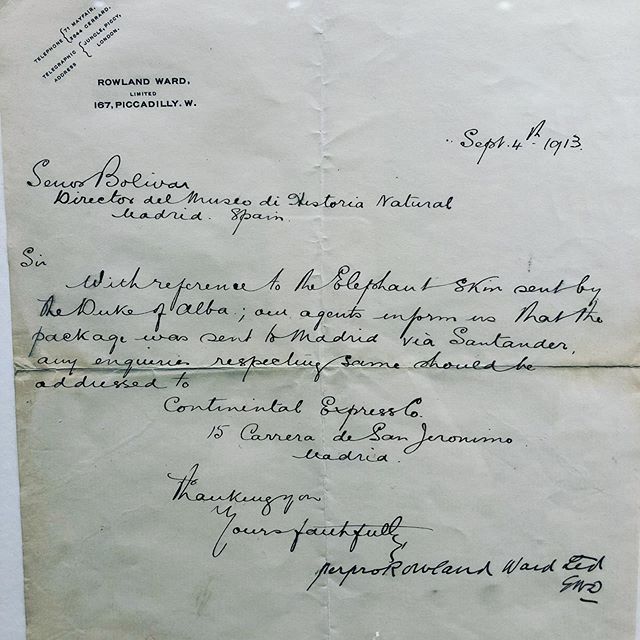 TELEPHONE { 71 MAYFAIR.
3644 GERRARD.
TELEGRAPHIC ADDRESS { JUNGLE, PICCY, LONDON.
ROWLAND WARD,
LIMITED
167, PICCADILLY. W.
Sept. 4th 1913.
Senor Bolivar
Director del Museo di Historia Natural
Madrid. Spain.
Sir
With reference to the Elephant skin sent by
the Duke of Alba; our agents inform us that the
package was sent to Madrid via Santander,
any enquiries respecting same should be
addressed to
Continental Express Co.
15 Carrera de San Jeronimo
Madrid.
Thanking you
Yours faithfully
per pro Rowland Ward Ltd